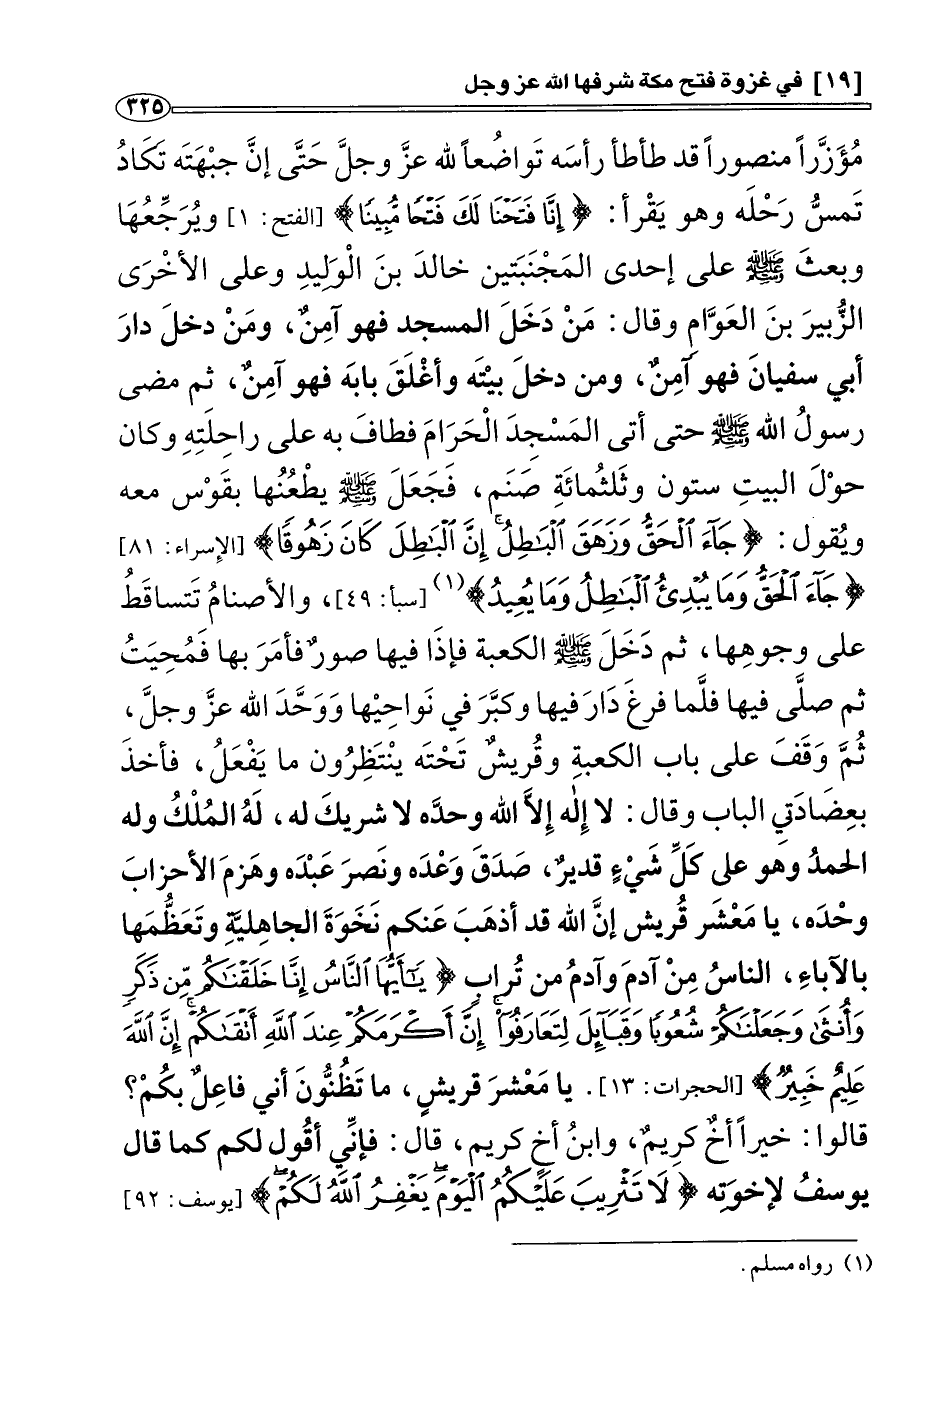 [١٩] في غزوة فتح مكة شرفها الله عز وجل
٣٢٥
مُؤَزَّراً منصوراً قد طأطأ رأسَه تَواضُعاً لله عزَّ وجلَّ حَتَّى إنَّ جبْهَتَه تَكَادُ
تَمسُّ رَحْلَه وهو يَقْرأ: ﴿ إِنَّا فَتَحْنَا لَكَ فَتْحًا مُّبِينًا﴾ [الفتح: ١] ويُرَجِّعُهَا
وبعثَ ﷺ على إحدى المَجْنَبَتين خالدَ بنَ الْوَلِيدِ وعلى الأخْرَى
الزُّبيرَ بنَ العَوَّامِ وقال: مَنْ دَخَلَ المسجد فهو آمِنٌ، ومَنْ دخلَ دارَ
أبي سفيانَ فهو آمِنٌ، ومن دخلَ بيْتَه وأغْلَقَ بابَه فهو آمِنٌ، ثم مضى
رسولُ الله ﷺ حتى أتى المَسْجِدَ الْحَرَامَ فطافَ به على راحِلَتِهِ وكان
حوْلَ البيتِ ستون وثَلثُمائةِ صَنَمٍ، فَجَعَلَ ﷺ يطْعُنُها بقَوْس معه
ويُقول: ﴿ جَآءَ ٱلْحَقُّ وَزَهَقَ ٱلْبَٰطِلُ ۚ إِنَّ ٱلْبَٰطِلَ كَانَ زَهُوقًا﴾ [الإسراء: ٨١]
﴿ جَآءَ ٱلْحَقُّ وَمَا يُبْدِئُ ٱلْبَٰطِلُ وَمَا يُعِيدُ﴾(١) [سبأ: ٤٩]، والأصنامُ تَتساقَطُ
على وجوهِها، ثم دَخَلَ ﷺ الكعبة فإذَا فيها صورٌ فأمَرَ بها فَمُحِيَتُ
ثم صلَّى فيها فلَّما فرغَ دَارَ فيها وكبَّرَ في نَواحِيْها وَوَحَّدَ الله عزَّ وجلَّ،
ثُمَّ وَقَفَ على باب الكعبةِ وقُريشٌ تَحْتَه ينْتَظِرُون ما يَفْعَلُ، فأخذَ
بعِضَادَتَي الباب وقال: لا إلٰه إلاَّ الله وحدَّه لا شريكَ له، لَهُ المُلْكُ وله
الحمدُ وهو على كَلِّ شَيْءٍ قديرٌ، صَدَقَ وَعْدَه ونَصرَ عَبْدَه وهَزمَ الأحزابَ
وحْدَه، يا مَعْشَر قُريش إنَّ الله قد أذهَبَ عَنكم نَخَوَةَ الجاهليَّةِ وتَعَظُّمَها
بالآباءِ، الناسُ مِنْ آدمَ وآدمُ من تُرابٍ ﴿ يَٰٓأَيُّهَا ٱلنَّاسُ إِنَّا خَلَقْنَٰكُم مِّن ذَكَرٍ
وَأُنثَىٰ وَجَعَلْنَٰكُمْ شُعُوبًا وَقَبَآئِلَ لِتَعَارَفُوٓا۟ ۚ إِنَّ أَكْرَمَكُمْ عِندَ ٱللَّهِ أَتْقَىٰكُمْ ۚ إِنَّ ٱللَّهَ
عَلِيمٌ خَبِيرٌ﴾ [الحجرات: ١٣]. يا مَعْشرَ قريشٍ، ما تَظُنُّونَ أني فاعِلٌ بكُمْ؟
قالوا: خيراً أخٌ كريمٌ، وابنُ أخٍ كريم، قال: فإنِّي أقُول لكم كما قال
يوسفُ لإخوَتِه ﴿ لَا تَثْرِيبَ عَلَيْكُمُ ٱلْيَوْمَ ۖ يَغْفِرُ ٱللَّهُ لَكُمْ ۖ﴾ [يوسف: ٩٢]
(١) رواه مسلم.